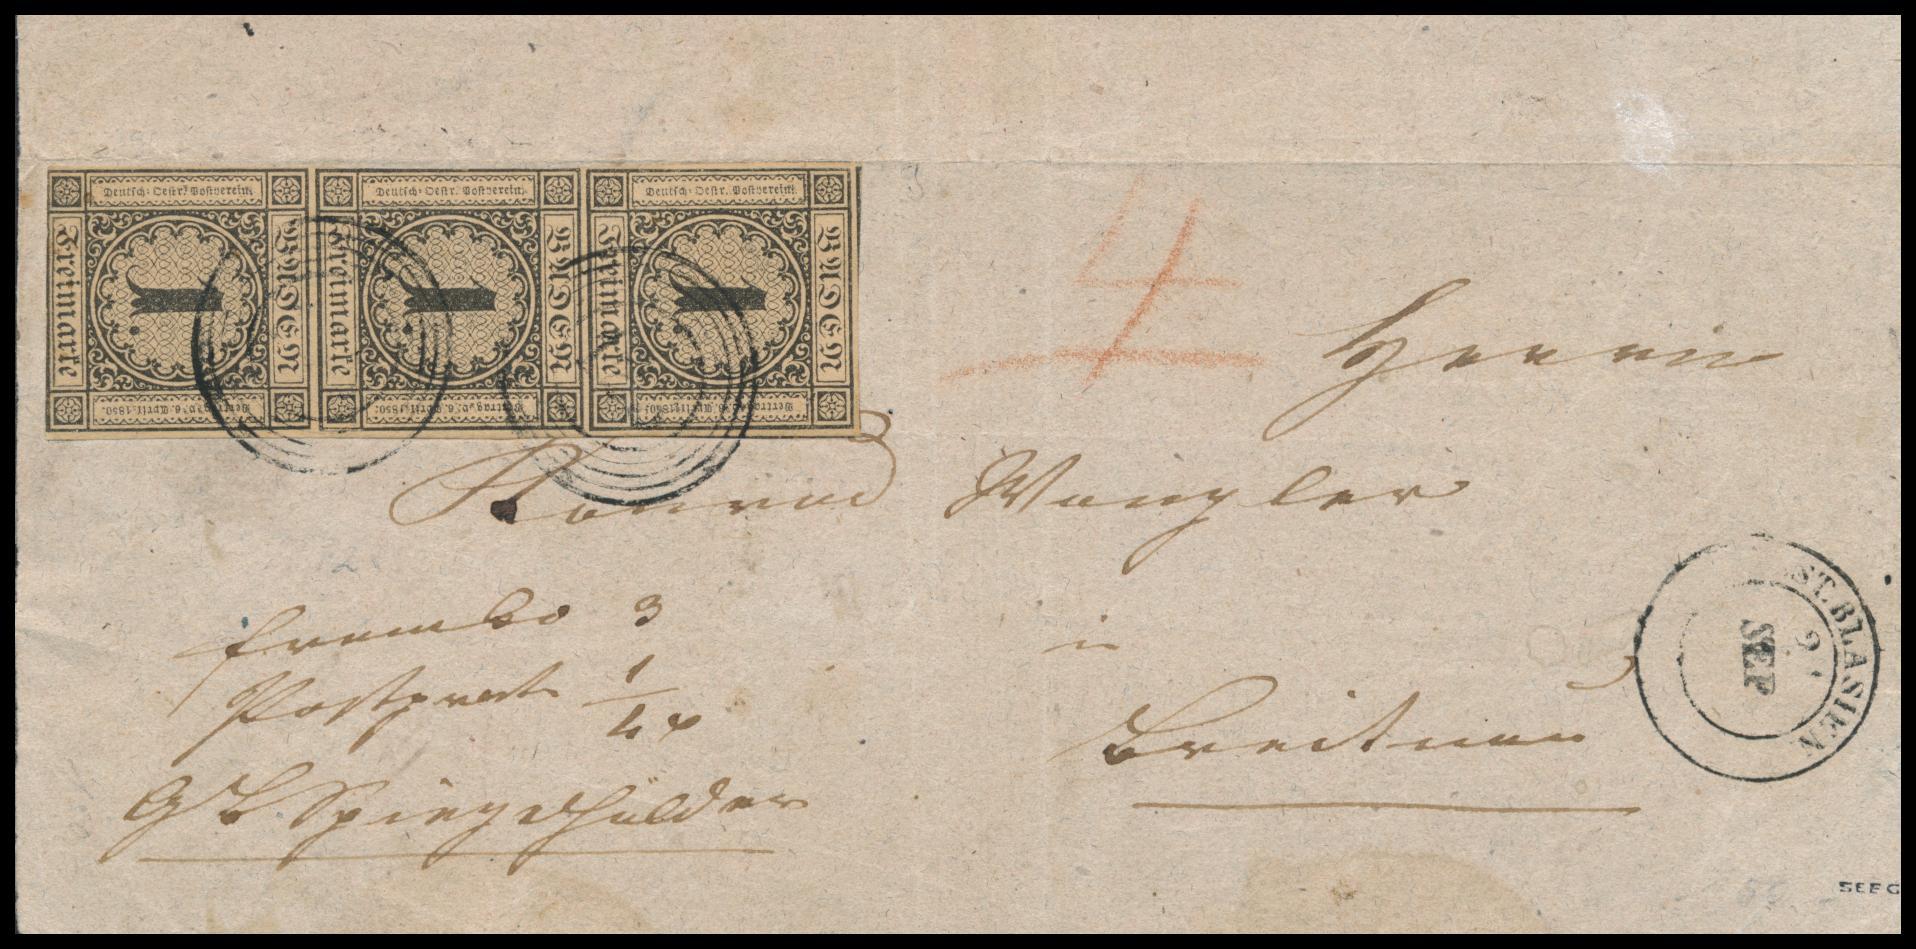 Deutsch-Oestr. Postverein. Deutsch-Oestr. Postverein. Deutsch-Oestr. Postverein.
Freimarke 1 BADEN Freimarke 1 BADEN Freimarke 1 BADEN
Vertrag v. 6. April 1850. Vertrag v. 6. April 1850. Vertrag v. 6. April 1850.
4
3
Herrn
Konrad Wangler
franko 3
in
ST. BLASIEN
9
SEP
Breitnau
SEEG